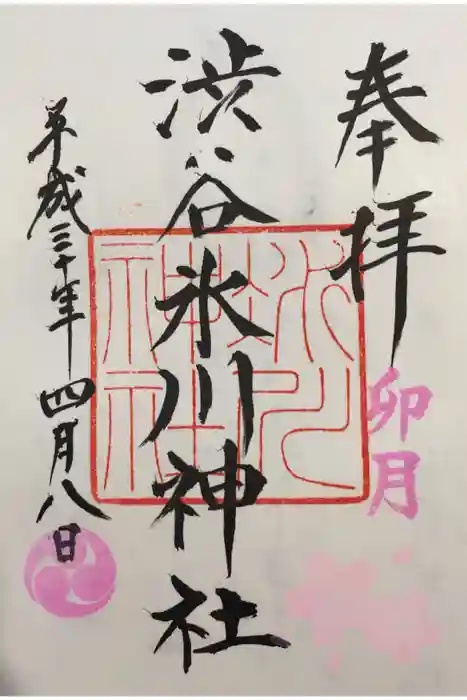 奉拝
卯月
渋谷氷川神社
平成三十年四月八日